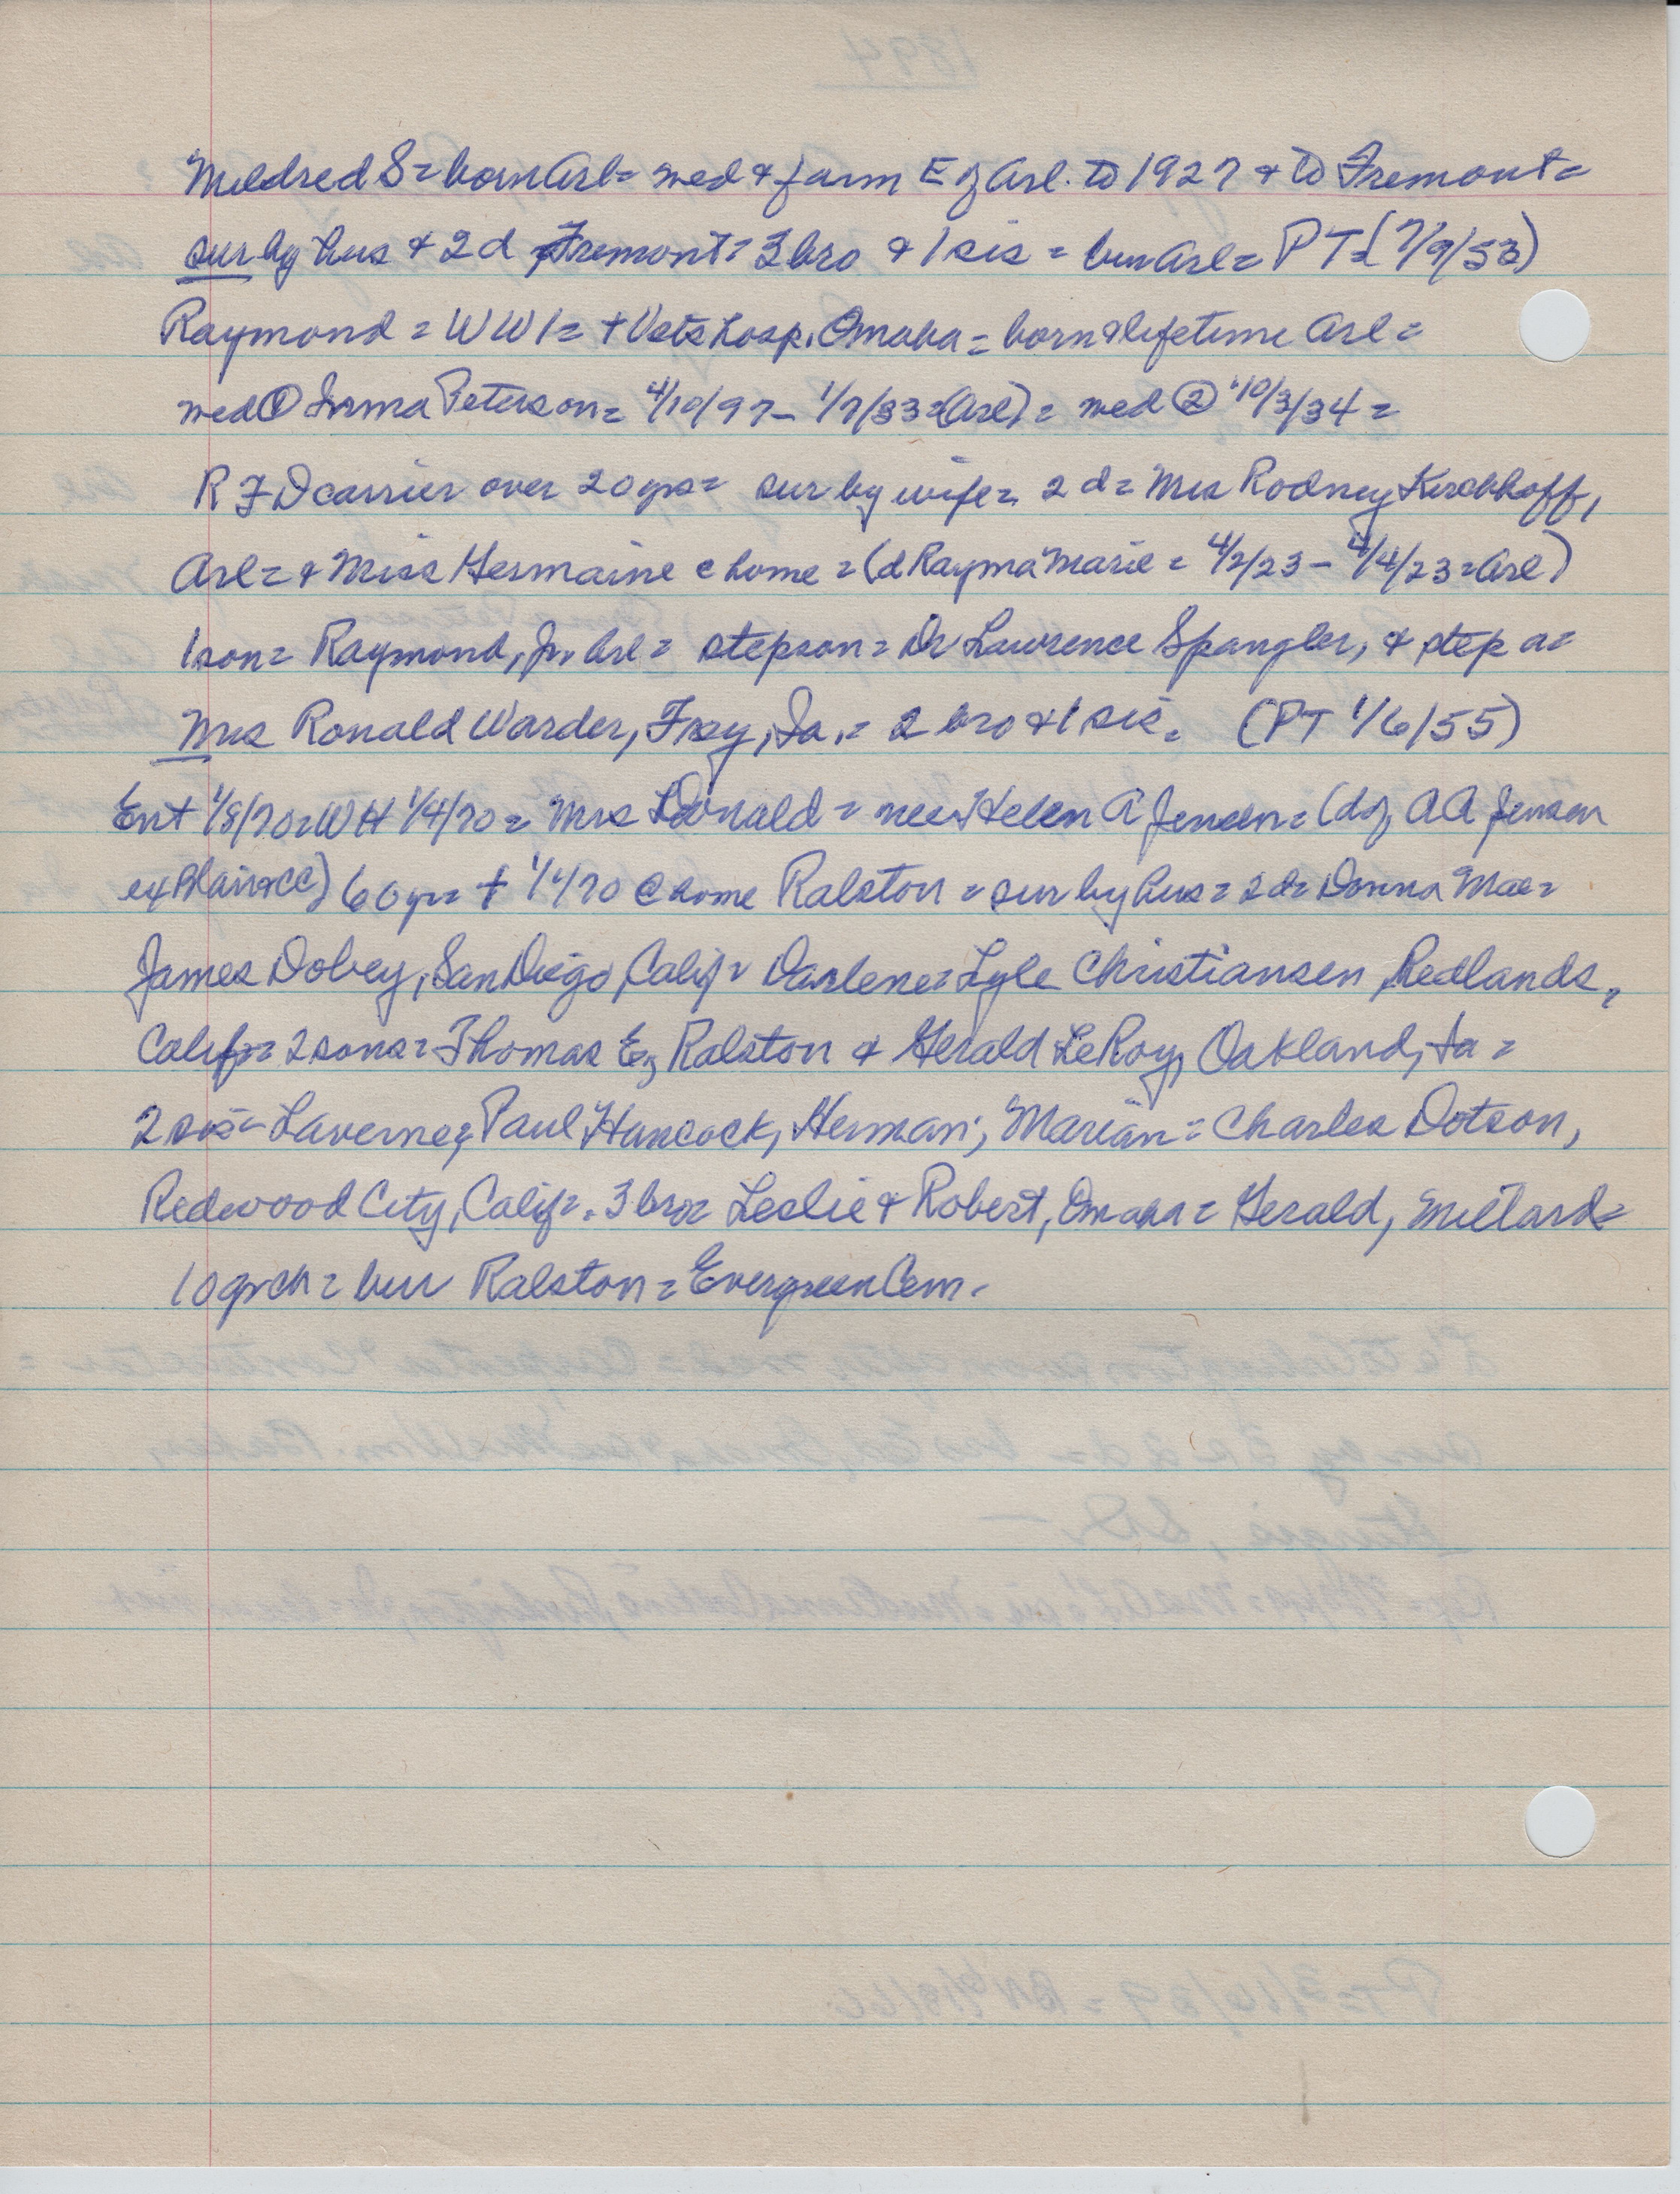 Mildred S = born Arl = med & farm E of Arl. to 1927 & to Fremont =
sur by hus & 2 d Fremont = 3 bro & 1 sis = bur Arl = PT = (7/9/53)
Raymond = WW1 = + Vets hosp. Omaha = born & lifetime Arl =
med ① Irma Peterson = 4/10/97 – 1/7/33 = (Arl) = med ② 10/3/34 =
RFD carrier over 20 yrs = sur by wife = 2 d = Mrs Rodney Kirchhoff,
Arl = & Miss Germaine @ home = (d Rayma Marie = 4/2/23 – 4/4/23 = Arl)
1 son = Raymond, Jr, Arl = stepson = Dr Lawrence Spangler, & step
Mrs Ronald Warder, Ia. = 2 bro & 1 sis. (PT 1/6/55)
Ent 1/8/70 = WH 1/4/70 = Mrs Donald = nee Helen A Jensen = (d of AA Jensen
ex Blair & CC) 60 yr = + 1/1/70 @ home Ralston = sur by hus = 2 d = Donna Mae =
James Dobey, San Diego, Calif = Darlene = Lyle Christiansen, Redlands,
Calif = 2 sons = Thomas E, Ralston & Gerald LeRoy, Oakland, Ia =
2 sis = Laverne = Paul Hancock, Herman; Marian = Charles Dotson,
Redwood City, Calif = . 3 bro = Leslie & Robert, Omaha = Gerald, Millard =
10 grch = bur Ralston = Evergreen Cem.